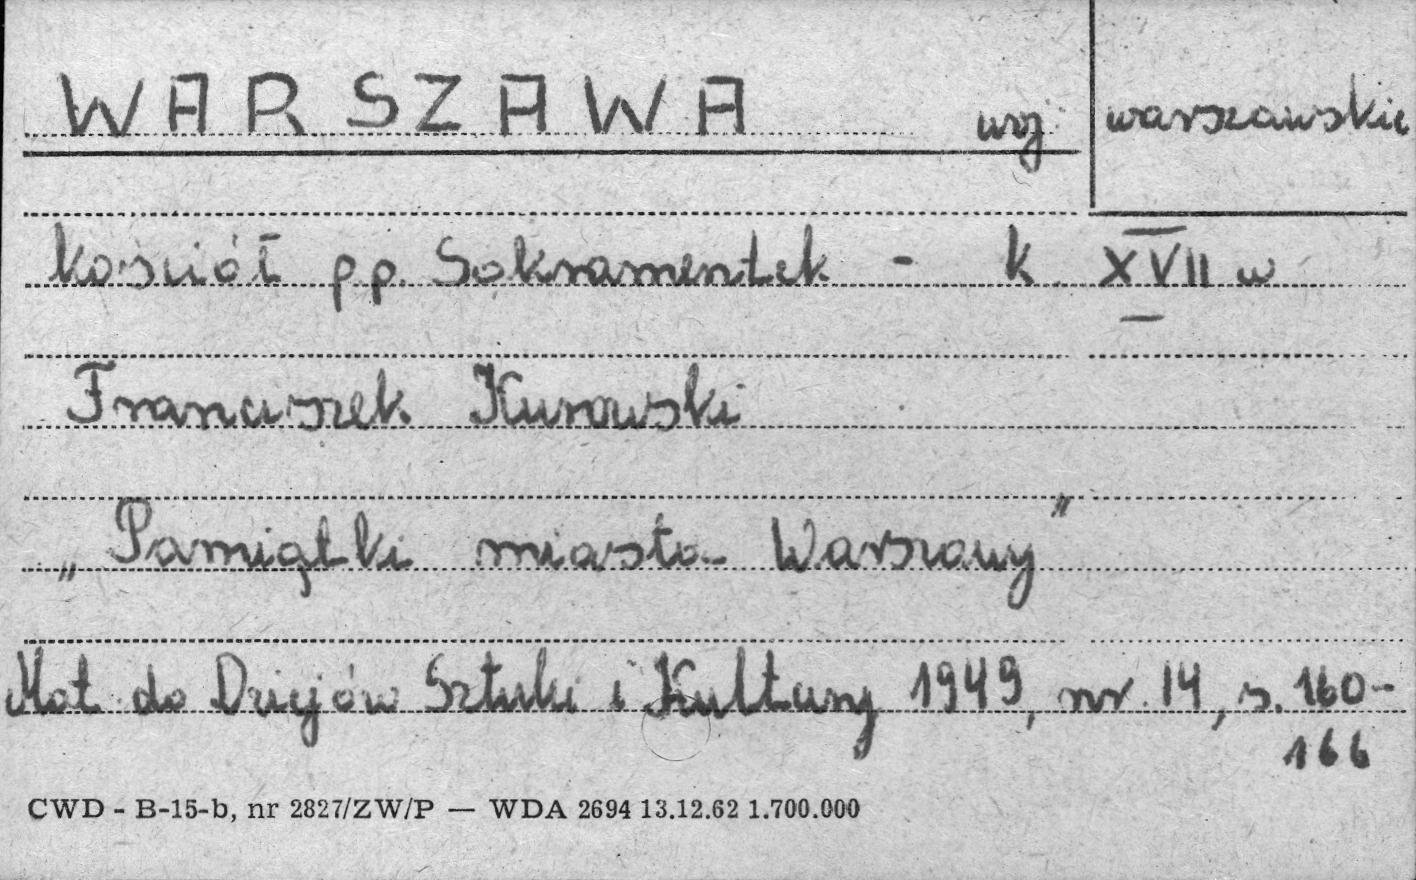 WARSZAWA woj warszawskie
kościół p.p. Sakramentek - k. XVII w
Franciszek Kurowski
„Pamiątki miasta Warszawy"
Mat. do Dziejów Sztuki i Kultury 1949, nr. 14, s. 160-
166
CWD - B-15-b, nr 2827/ZW/P — WDA 2694 13.12.62 1.700.000